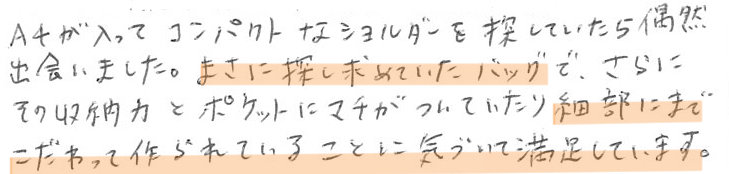 A4が入ってコンパクトなショルダーを探していたら偶然
出会いました。まさに探し求めていたバッグで、さらに
その収納力とポケットにマチがついていたり細部にまで
こだわって作られていることに気づいて満足しています。